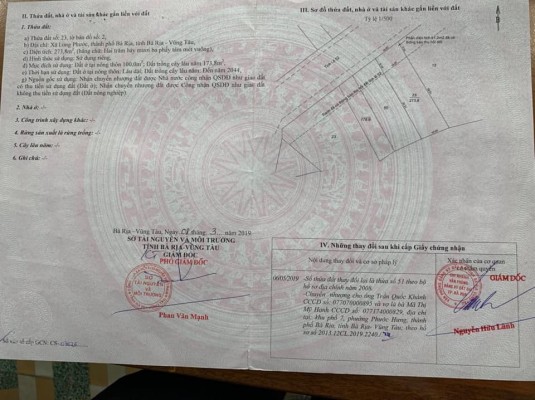 II. Thửa đất, nhà ở và tài sản khác gắn liền với đất
1. Thửa đất:
a) Thửa đất số: 23, tờ bản đồ số: 2,
b) Địa chỉ: Xã Long Phước, thành phố Bà Rịa, tỉnh Bà Rịa - Vũng Tàu,
c) Diện tích: 273,8m², (bằng chữ: Hai trăm bảy mươi ba phẩy tám mét vuông),
d) Hình thức sử dụng: Sử dụng riêng,
đ) Mục đích sử dụng: Đất ở tại nông thôn 100,0m². Đất trồng cây lâu năm 173,8m²,
e) Thời hạn sử dụng: Đất ở tại nông thôn: Lâu dài; Đất trồng cây lâu năm: Đến năm 2044,
g) Nguồn gốc sử dụng: Nhận chuyển nhượng đất được Nhà nước công nhận QSDĐ như giao đất
có thu tiền sử dụng đất (Đất ở); Nhận chuyển nhượng đất được Công nhận QSDĐ như giao đất
không thu tiền sử dụng đất (Đất nông nghiệp)
2. Nhà ở: -/-
3. Công trình xây dựng khác: -/-
4. Rừng sản xuất là rừng trồng: -/-
5. Cây lâu năm: -/-
6. Ghi chú: -/-
Bà Rịa - Vũng Tàu, Ngày tháng 3 năm 2019
SỞ TÀI NGUYÊN VÀ MÔI TRƯỜNG
TỈNH BÀ RỊA-VŨNG TÀU
GIÁM ĐỐC
PHÓ GIÁM ĐỐC
SỞ
TÀI NGUYÊN
VÀ
MÔI TRƯỜNG
Phan Văn Mạnh
III. Sơ đồ thửa đất, nhà ở và tài sản khác gắn liền với đất
Tỷ lệ 1/500
23
273,8
IV. Những thay đổi sau khi cấp Giấy chứng nhận
Nội dung thay đổi và cơ sở pháp lý
Xác nhận của cơ quan
có thẩm quyền
-Số thửa đất thay đổi lại là thửa số 51 theo hệ
hồ sơ địa chính năm 2008.
-Chuyển nhượng cho ông Trần Quốc Khánh
CCCD số: và vợ là bà Mã Thị
Mỹ Hạnh CCCD số: 077174000829, địa chỉ
tại: Khu phố 7, phường Phước Hưng, thành
phố Bà Rịa, tỉnh Bà Rịa- Vũng Tàu, theo hồ
sơ số
GIÁM ĐỐC
Nguyễn Hữu Lành